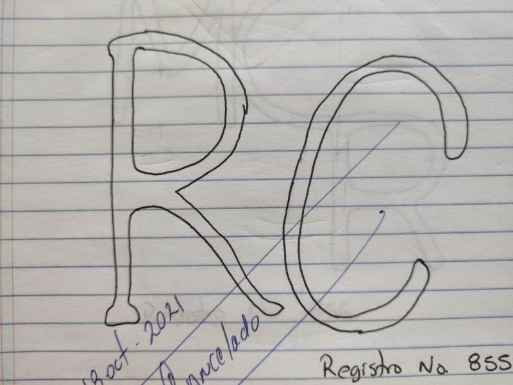 RC
18 oct. 2021
Cancelado
Registro No 855